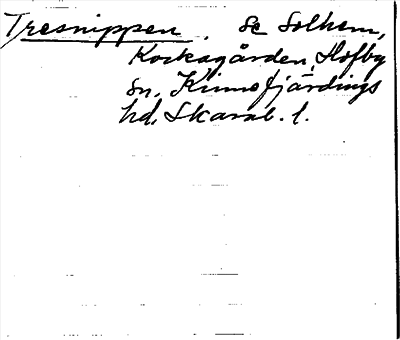 Tresnippen. Se Solhem,
Kockagården, Hofby
sn, Kinnefjärdings
hd, Skarab. l.